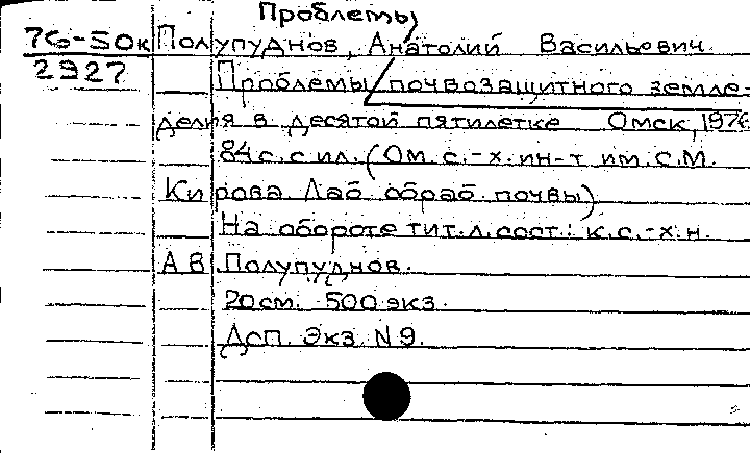 Проблемы
76-50к Полупуднов, Анатолий Васильевич.
2927 Проблемы почвозащитного земле-
делия в десятой пятилетке Омск, 1976
84 с. с ил. (Ом. с.-х. ин-т им. С.М.
Кирова. Лаб. обраб. почвы)
На обороте тит. л. сост.: к.с.-х.н.
А В Полупуднов.
20 см. 500 экз.
Дсп. Экз. N 9.